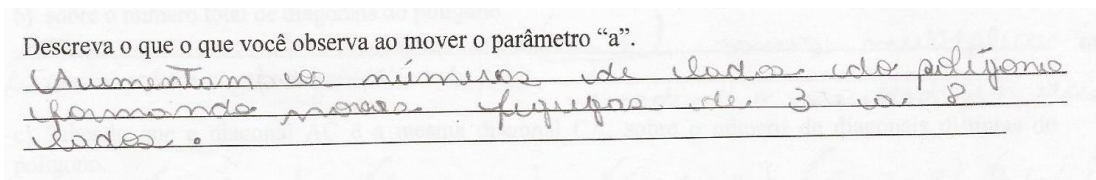 Descreva o que o que você observa ao mover o parâmetro “a”.
Aumentam os números de lados do polígono
formando novas figuras de 3 a 8
lados.